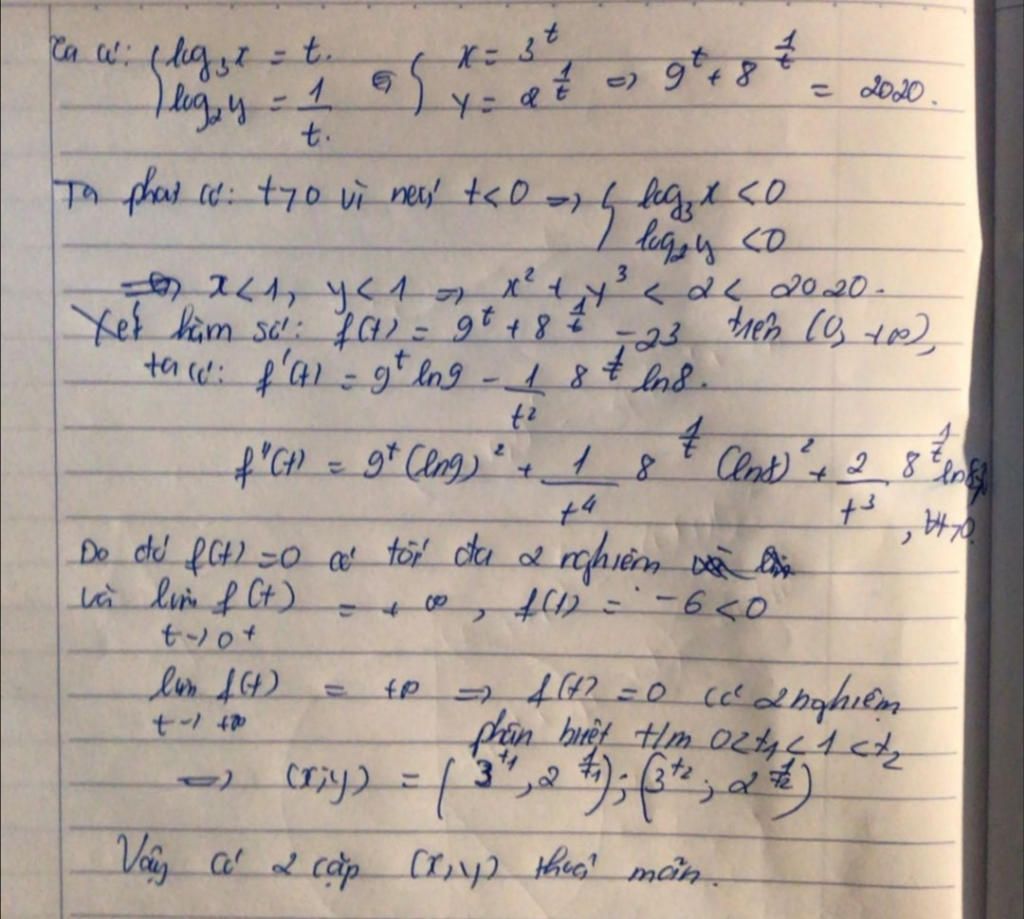 Ta có: { log₃x = t. log₂y = 1/t. ⇔ { x = 3^t y = 2^(1/t) ⇒ 9^t + 8^(1/t) = 2020.
Ta phải có: t>0 vì nếu t<0 ⇒ { log₃x <0 log₂y <0
⇒ x<1, y<1 ⇒ x² + y³ < 2 < 2020.
Xét hàm số: f(t) = 9^t + 8^(1/t) - 23 trên (0, +∞),
ta có: f'(t) = 9^t ln9 - 1/t² 8^(1/t) ln8.
f''(t) = 9^t (ln9)² + 1/t⁴ 8^(1/t) (ln8)² + 2/t³ 8^(1/t) ln8 >0
, ∀t>0.
Do đó f(t)=0 có tối đa 2 nghiệm
và lim f(t) = +∞, f(1) = -6 <0
t→0+
lim f(t) = +∞ ⇒ f(t) = 0 có 2 nghiệm
t→+∞
phân biệt t/m 0<t₁<1<t₂
⇒ (x;y) = (3^t₁, 2^(1/t₁)); (3^t₂; 2^(1/t₂))
Vậy có 2 cặp (x,y) thoả mãn.